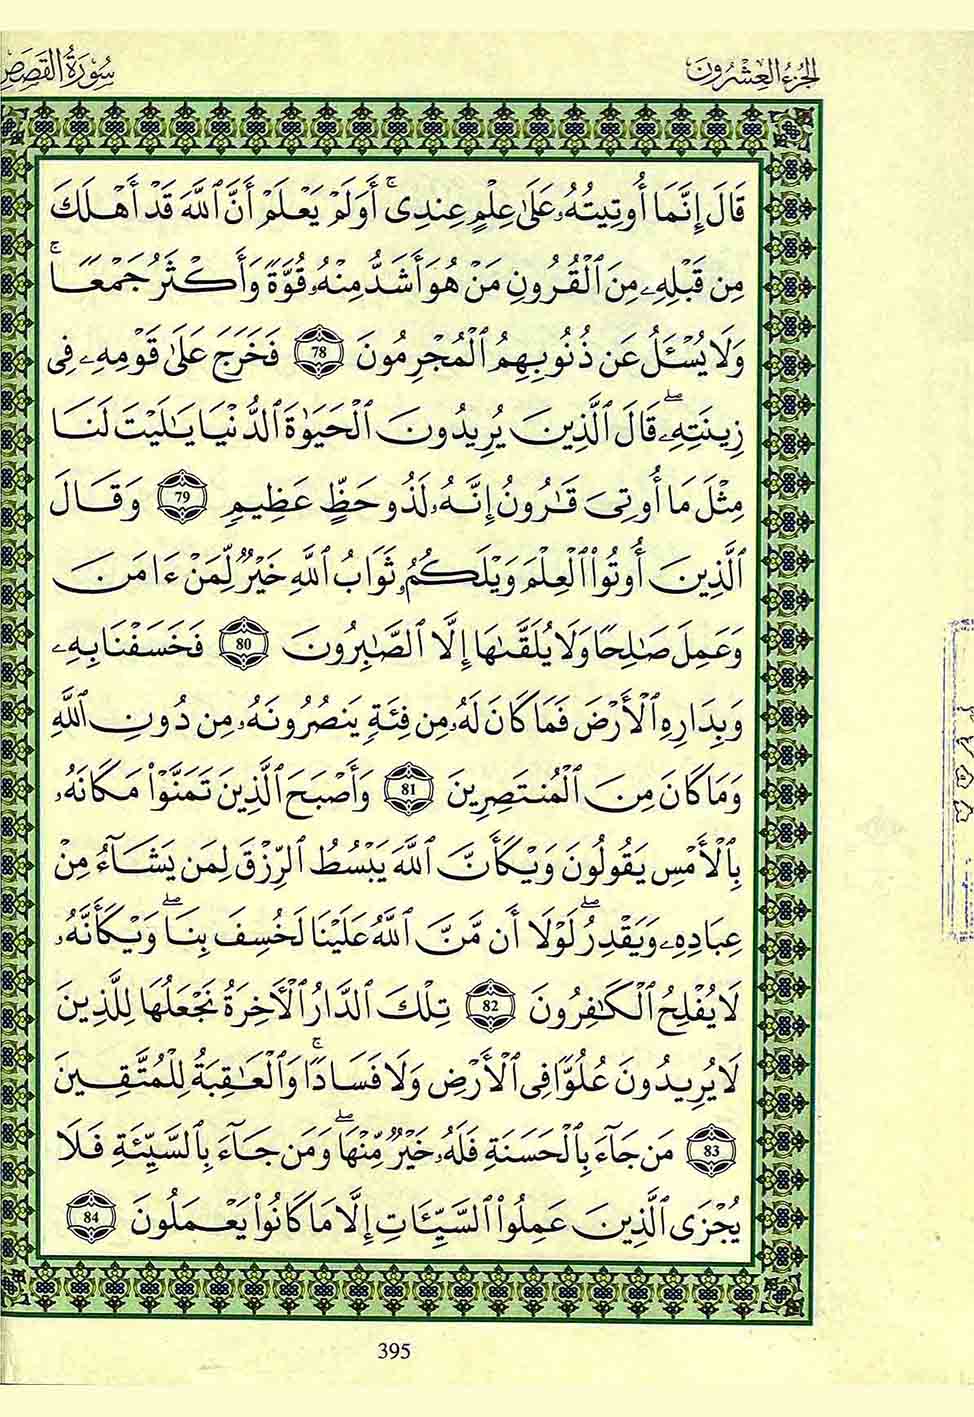 الجزء العشرون
سورة القصص
قَالَ إِنَّمَا أُوتِيتُهُۥ عَلَىٰ عِلْمٍ عِندِىٓ ۚ أَوَلَمْ يَعْلَمْ أَنَّ ٱللَّهَ قَدْ أَهْلَكَ
مِن قَبْلِهِۦ مِنَ ٱلْقُرُونِ مَنْ هُوَ أَشَدُّ مِنْهُ قُوَّةً وَأَكْثَرُ جَمْعًا ۚ
وَلَا يُسْـَٔلُ عَن ذُنُوبِهِمُ ٱلْمُجْرِمُونَ 78 فَخَرَجَ عَلَىٰ قَوْمِهِۦ فِى
زِينَتِهِۦ ۖ قَالَ ٱلَّذِينَ يُرِيدُونَ ٱلْحَيَوٰةَ ٱلدُّنْيَا يَـٰلَيْتَ لَنَا
مِثْلَ مَآ أُوتِىَ قَـٰرُونُ إِنَّهُۥ لَذُو حَظٍّ عَظِيمٍ 79 وَقَالَ
ٱلَّذِينَ أُوتُوا۟ ٱلْعِلْمَ وَيْلَكُمْ ثَوَابُ ٱللَّهِ خَيْرٌ لِّمَنْ ءَامَنَ
وَعَمِلَ صَـٰلِحًا وَلَا يُلَقَّىٰهَآ إِلَّا ٱلصَّـٰبِرُونَ 80 فَخَسَفْنَا بِهِۦ
وَبِدَارِهِ ٱلْأَرْضَ فَمَا كَانَ لَهُۥ مِن فِئَةٍ يَنصُرُونَهُۥ مِن دُونِ ٱللَّهِ
وَمَا كَانَ مِنَ ٱلْمُنتَصِرِينَ 81 وَأَصْبَحَ ٱلَّذِينَ تَمَنَّوْا۟ مَكَانَهُۥ
بِٱلْأَمْسِ يَقُولُونَ وَيْكَأَنَّ ٱللَّهَ يَبْسُطُ ٱلرِّزْقَ لِمَن يَشَآءُ مِنْ
عِبَادِهِۦ وَيَقْدِرُ ۖ لَوْلَآ أَن مَّنَّ ٱللَّهُ عَلَيْنَا لَخُسِفَ بِنَا ۖ وَيْكَأَنَّهُۥ
لَا يُفْلِحُ ٱلْكَـٰفِرُونَ 82 تِلْكَ ٱلدَّارُ ٱلْـَٔاخِرَةُ نَجْعَلُهَا لِلَّذِينَ
لَا يُرِيدُونَ عُلُوًّا فِى ٱلْأَرْضِ وَلَا فَسَادًا ۚ وَٱلْعَـٰقِبَةُ لِلْمُتَّقِينَ
83 مَن جَآءَ بِٱلْحَسَنَةِ فَلَهُۥ خَيْرٌ مِّنْهَا ۖ وَمَن جَآءَ بِٱلسَّيِّئَةِ فَلَا
يُجْزَى ٱلَّذِينَ عَمِلُوا۟ ٱلسَّيِّـَٔاتِ إِلَّا مَا كَانُوا۟ يَعْمَلُونَ 84
395